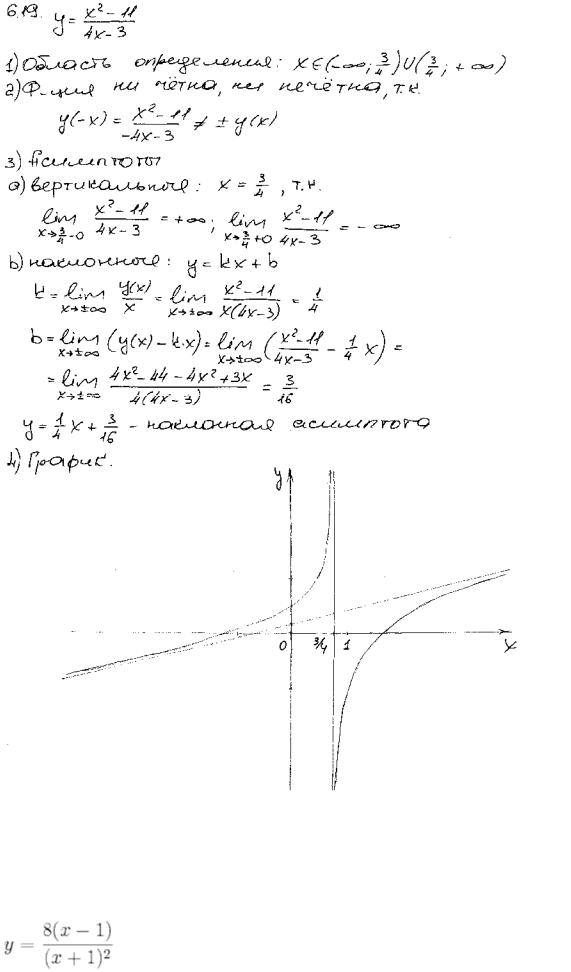 6.19. y = \frac{x^2 - 11}{4x - 3}
1) Область определения: x ∈ (-∞; \frac{3}{4}) ∪ (\frac{3}{4}; +∞)
2) Ф-ция ни чётна, ни нечётна, т.к.
y(-x) = \frac{x^2 - 11}{-4x - 3} ≠ ± y(x)
3) Асимптоты
a) вертикальные: x = \frac{3}{4}, т.к.
\lim_{x→\frac{3}{4}-0} \frac{x^2 - 11}{4x - 3} = +∞; \lim_{x→\frac{3}{4}+0} \frac{x^2 - 11}{4x - 3} = -∞
b) наклонные: y = kx + b
k = \lim_{x→±∞} \frac{y(x)}{x} = \lim_{x→±∞} \frac{x^2 - 11}{x(4x - 3)} = \frac{1}{4}
b = \lim_{x→±∞} (y(x) - k·x) = \lim_{x→±∞} (\frac{x^2 - 11}{4x - 3} - \frac{1}{4} x) =
= \lim_{x→±∞} \frac{4x^2 - 44 - 4x^2 + 3x}{4(4x - 3)} = \frac{3}{16}
y = \frac{1}{4} x + \frac{3}{16} - наклонная асимптота
4) График.
y
0 3/4 1 x
y = \frac{8(x - 1)}{(x + 1)^2}